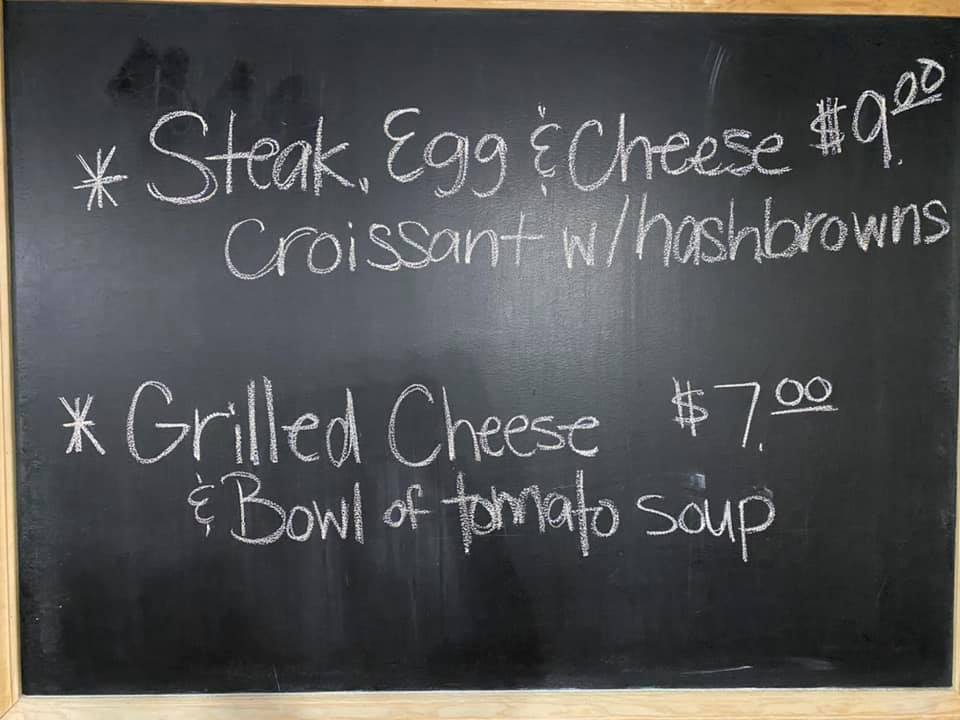 * Steak, Egg & Cheese $9.00
Croissant w/hashbrowns
* Grilled Cheese $7.00
& Bowl of tomato soup